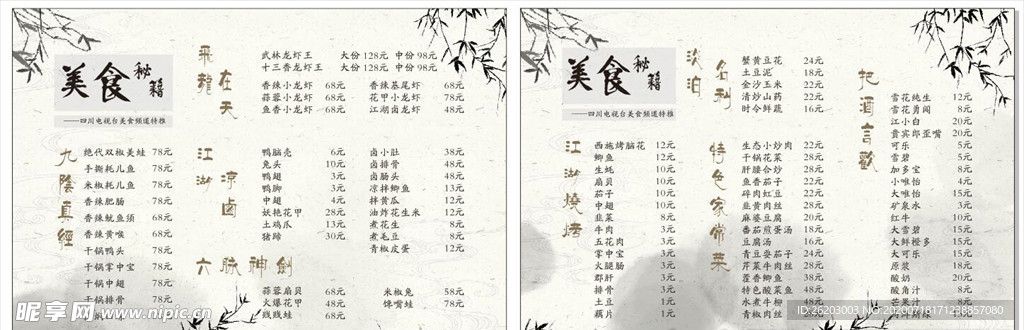 美食秘籍
——四川电视台美食频道特推
飛龍在天
武林龙虾王 大份 128元 中份 98元
十三香龙虾王 大份 128元 中份 98元
香辣小龙虾 68元 香辣基尾虾 68元
蒜蓉小龙虾 68元 花甲小龙虾 78元
鱼香小龙虾 68元 江湖卤龙虾 48元
九陰真經
绝代双椒美蛙 78元
手撕耗儿鱼 78元
米椒耗儿鱼 78元
香辣肥肠 78元
香辣鱿鱼须 68元
香辣黄喉 68元
干锅鸭头 78元
干锅掌中宝 78元
干锅中翅 78元
干锅排骨 78元
江湖涼鹵
鸭脑壳 6元 卤小肚 38元
兔头 10元 卤排骨 48元
鸭翅 3元 卤肠头 48元
鸭脚 3元 凉拌鲫鱼 13元
中翅 4元 拌黄瓜 12元
妖艳花甲 28元 油炸花生米 12元
土鸡爪 13元 煮花生 8元
猪蹄 30元 煮毛豆 8元
青椒皮蛋 12元
六脉神劍
蒜蓉扇贝 68元 米椒兔 58元
火爆花甲 48元 馋嘴蛙 78元
贱贱蛙 68元
美食秘籍
——四川电视台美食频道特推
淡泊名利
蟹黄豆花 24元
土豆泥 18元
金沙玉米 22元
清炒山药 22元
时令鲜蔬 16元
江湖燒烤
西施烤脑花 12元
鲫鱼 12元
生蚝 10元
扇贝 10元
茄子 10元
中翅 10元
韭菜 8元
牛肉 3元
五花肉 3元
掌中宝 3元
火腿肠 3元
郡肝 3元
排骨 3元
土豆 1元
藕片 1元
特色家常菜
生态小炒肉 22元
干锅花菜 28元
肝腰合炒 28元
鱼香茄子 22元
碎肉豇豆 22元
韭黄肉丝 28元
麻婆豆腐 20元
番茄煎蛋汤 18元
豆腐汤 16元
青豆耍茄子 24元
芹菜牛肉丝 28元
藿香鲫鱼 38元
特色酸菜鱼 48元
水煮牛柳 48元
青椒肉丝 28元
把酒言歡
雪花纯生 12元
雪花勇闯 8元
江小白 20元
贵宾郎歪嘴 20元
可乐 5元
雪碧 5元
加多宝 8元
小唯怡 4元
大唯怡 15元
矿泉水 3元
红牛 10元
大雪碧 15元
大鲜橙多 15元
大可乐 15元
原浆 18元
酸奶 20元
酸角汁 8元
芒果汁 8元
昵享网 www.nipic.cn
ID:26203003 NO:20200718171238857080